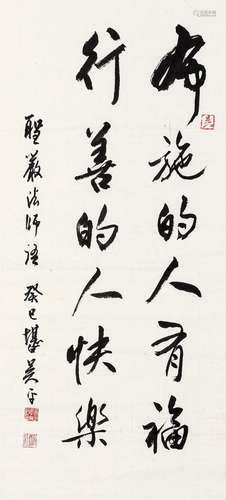 布施的人有福
行善的人快樂
聖嚴法師語 癸巳堪吴平